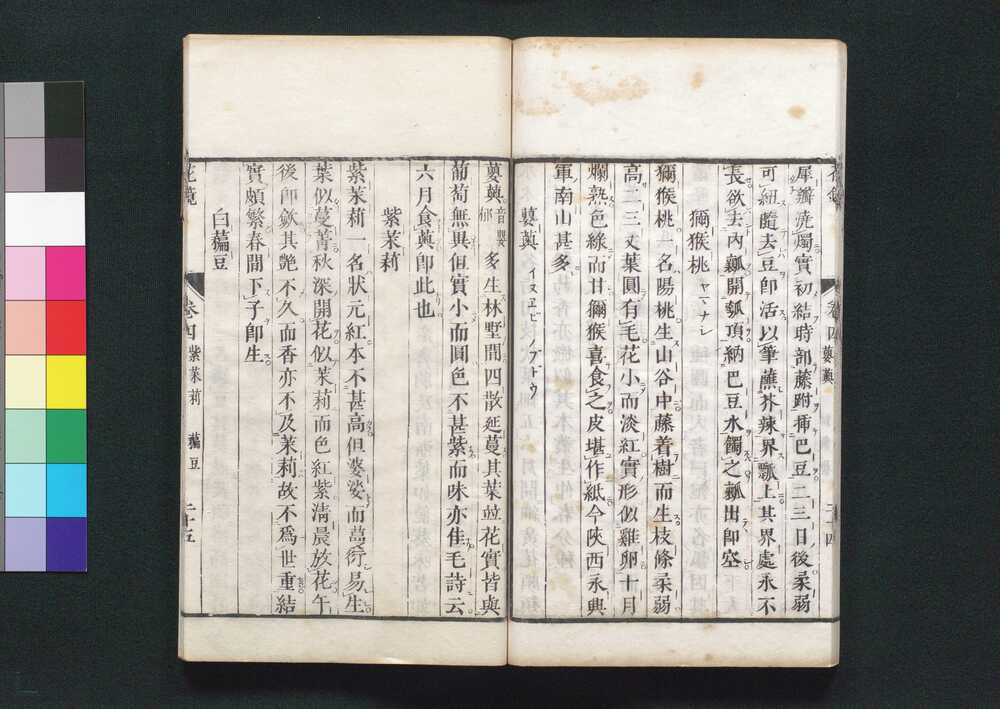 犀瓣燒燭實初結時部藤跗揷巴豆二三日後柔弱
可紐隨去豆卽活以筆蘸芥辣界瓢上其界處永不
長欲去內瓤開瓠頂納巴豆水觸之瓤出卽空
獼猴桃 ヤマナシ
獼猴桃一名陽桃生山谷中藤着樹而生枝條柔弱
高二三丈葉圓有毛花小而淡紅實形似雞卵十月
爛熟色綠而甘獼猴喜食之皮堪作紙今陝西永興
軍南山甚多
蘡薁 イヌヱビ ノブドウ
卷四 蘡薁 二十四
蘡薁音嬰郁多生林墅間四散延蔓其葉並花實皆與
葡萄無異但實小而圓色不甚紫而味亦佳毛詩云
六月食薁卽此也
紫茉莉
紫茉莉一名狀元紅本不甚高但婆娑而蔓衍易生
葉似蔓菁秋深開花似茉莉而色紅紫淸晨放花午
後卽歛其艶不久而香亦不及茉莉故不爲世重結
實頗繁春間下子卽生
白藊豆
花鏡 卷四 紫茉莉 藊豆 二十五